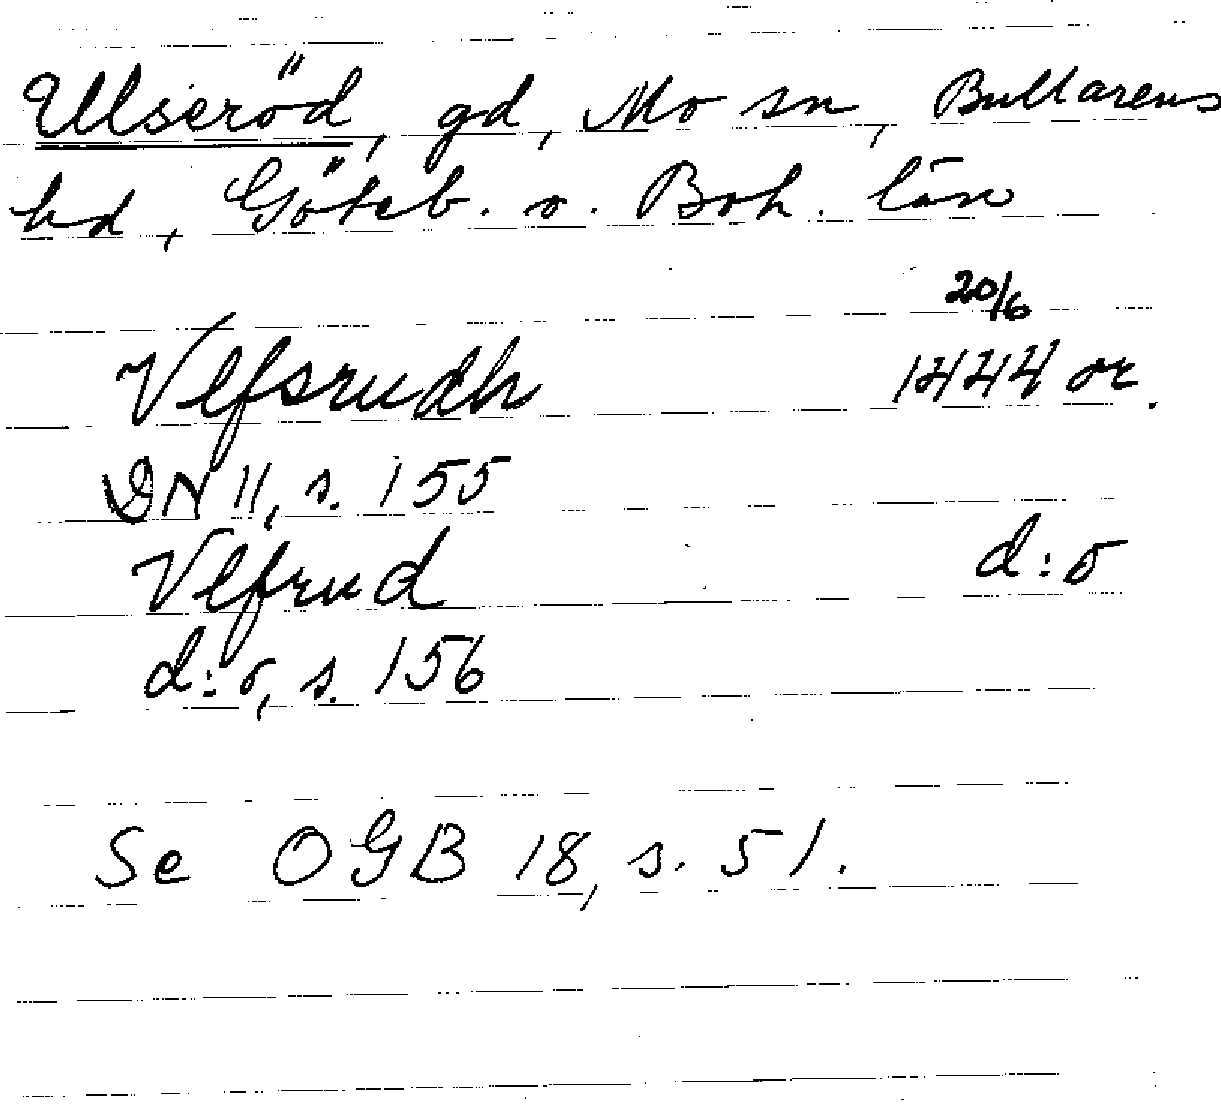 Ulseröd, gd, Mo sn, Bullarens
hd, Göteb. o. Boh. län
20/6
Vlfsrudh 1444 or.
DN 11, s. 155
Vlfrud d:o
d:o, s. 156
Se OGB 18, s. 51.